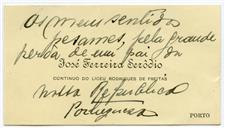 Os meus sentidos
pesames, pela grande
perda de um pai da
José Ferreira Serôdio
CONTINUO DO LICEU RODRIGUES DE FREITAS
nossa Republica
Portuguesa
PORTO